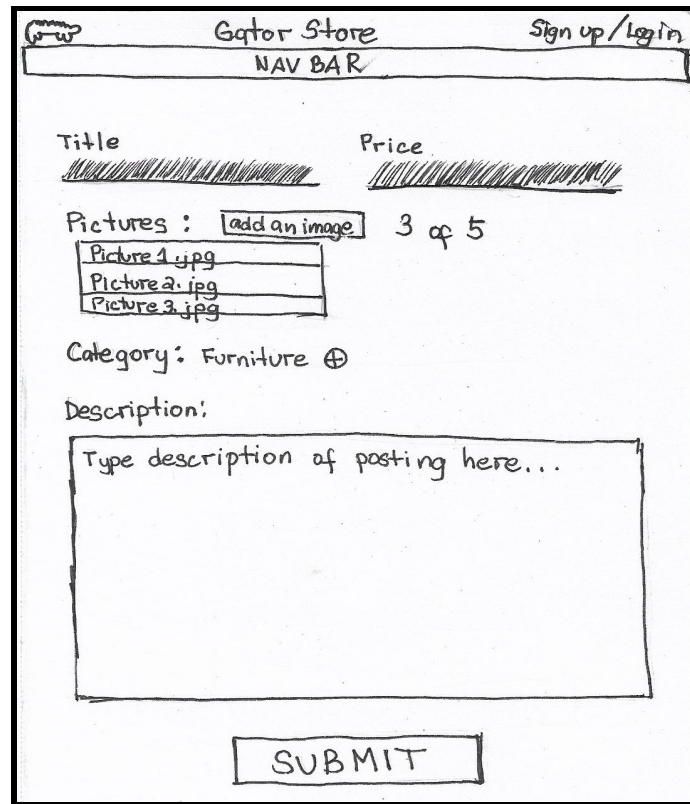 Gator Store Sign up/Login
NAV BAR
Title Price
Pictures : add an image 3 of 5
Picture 1.jpg
Picture 2.jpg
Picture 3.jpg
Category: Furniture ⊕
Description:
Type description of posting here...
SUBMIT